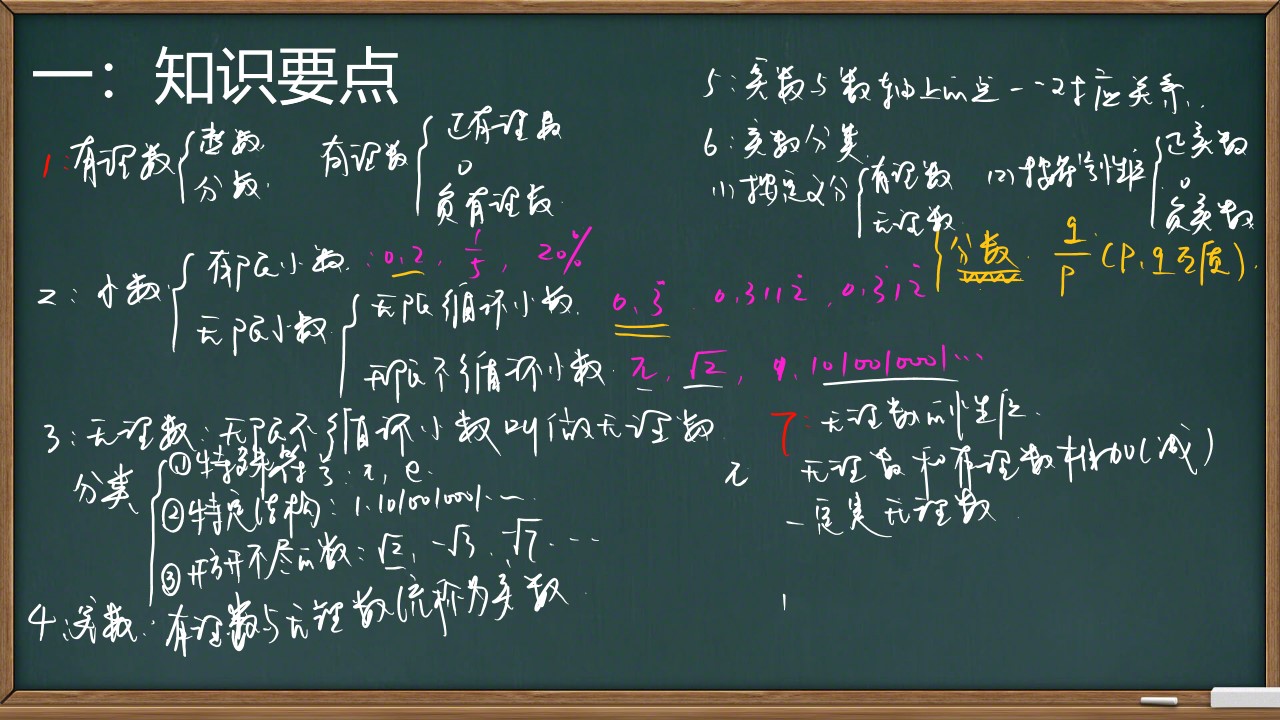 一：知识要点
1：有理数 { 整数 分数 有理数 { 正有理数 0 负有理数
2：小数 { 有限小数：0.2, 1/5, 20%
无限小数 { 无限循环小数 0.3̇ 0.3112̇, 0.3̇12̇
无限不循环小数 π, √2, 9.1010010001…
3：无理数：无限不循环小数叫做无理数
分类 { ①特殊符号：π, e.
②特定结构：1.1010010001…
③开方开不尽的数：√2, -√3, √7 …
4：实数：有理数与无理数统称为实数
5：实数与数轴上的点一一对应关系.
6：实数分类
(1)按定义分 { 有理数 无理数 (2)按 性质 { 正实数 0 负实数
{ 分数 q/p (p, q互质)
7：无理数的性质
π 无理数和有理数相加(减)
一定是无理数